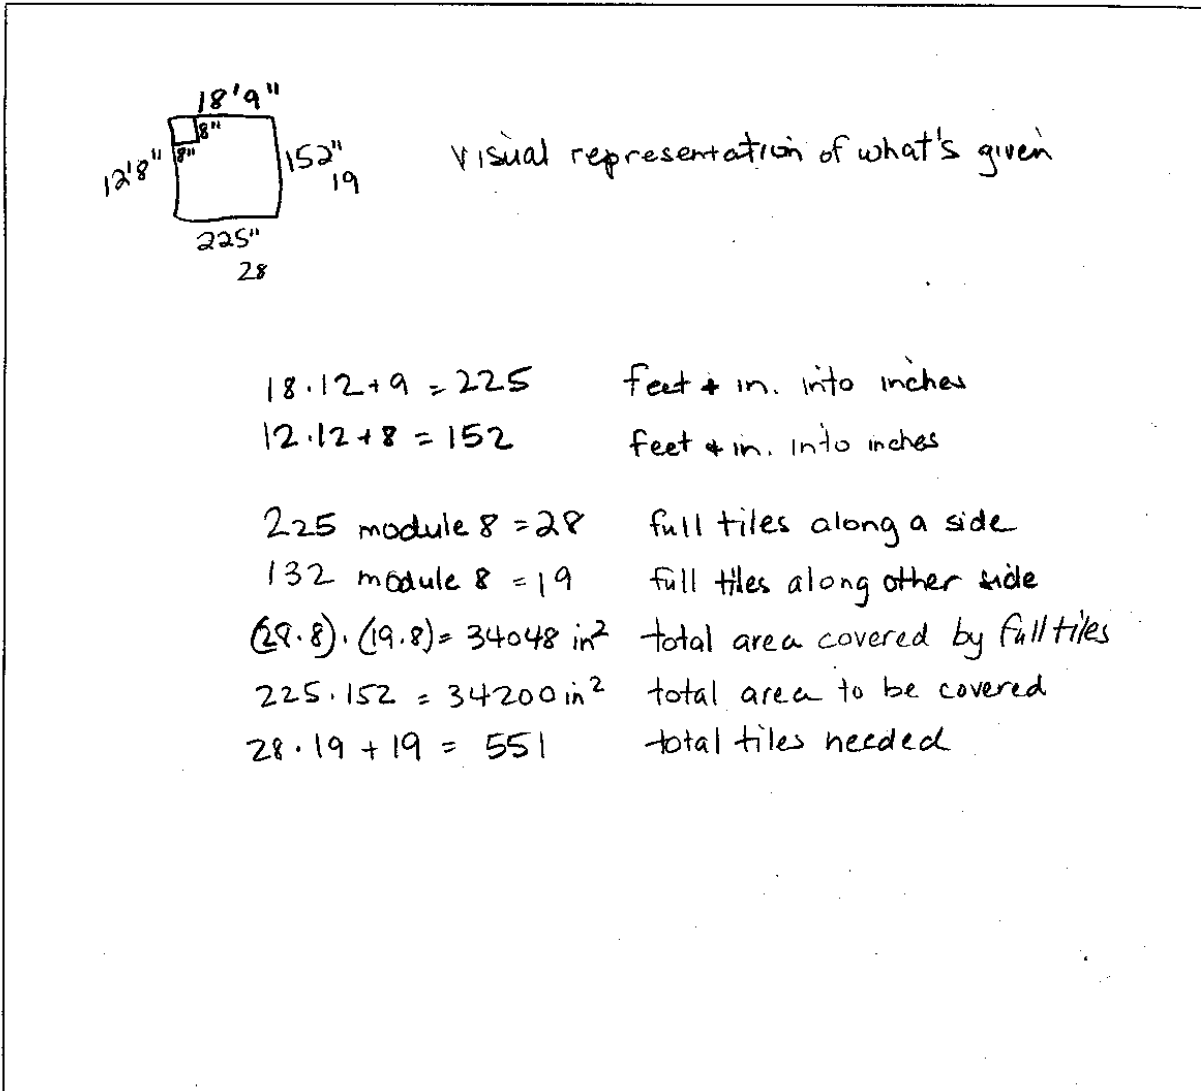 18'9"
8"
12'8" 8" 152" visual representation of what's given
19
225"
28
18·12+9 = 225 feet + in. into inches
12·12+8 = 152 feet + in. into inches
225 module 8 = 28 full tiles along a side
132 module 8 = 19 full tiles along other side
(28·8)·(19·8) = 34048 in² total area covered by full tiles
225·152 = 34200 in² total area to be covered
28·19 + 19 = 551 total tiles needed